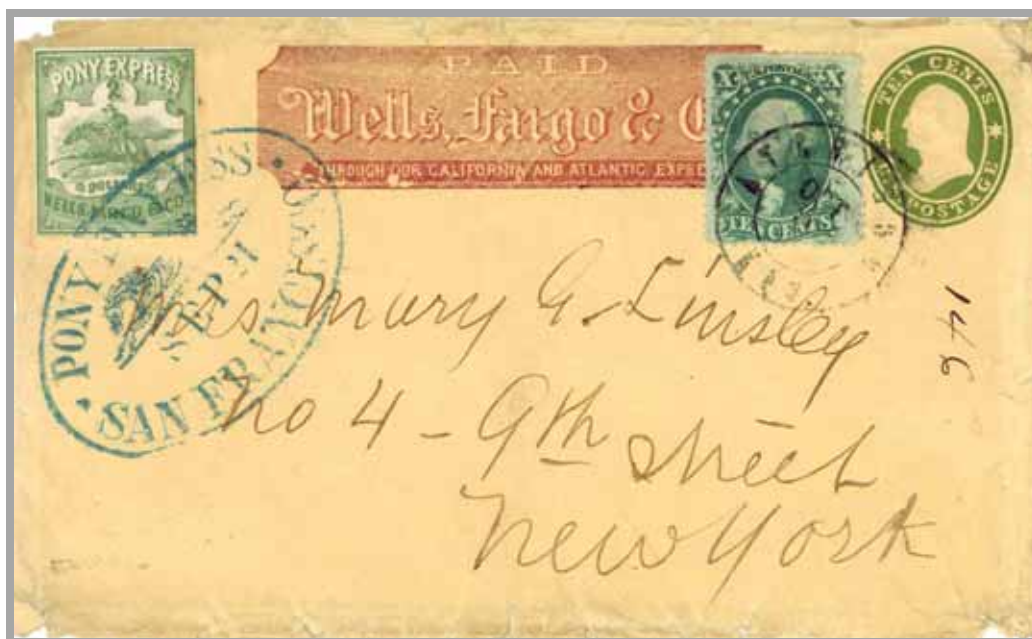 PONY EXPRESS
2
DOLLARS
WELLS, FARGO & CO.
PAID
Wells, Fargo & C
THROUGH OUR CALIFORNIA AND ATLANTIC EXPRE
U.S. POSTAGE
X X
TEN CENTS
TEN CENTS
U.S. POSTAGE
PONY EXPRESS
SEP 21
SAN FRANCISCO
Mrs Mary G. Linsley
No 4 - 9th Street
New York